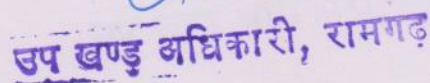 उप खण्ड अधिकारी, रामगढ़